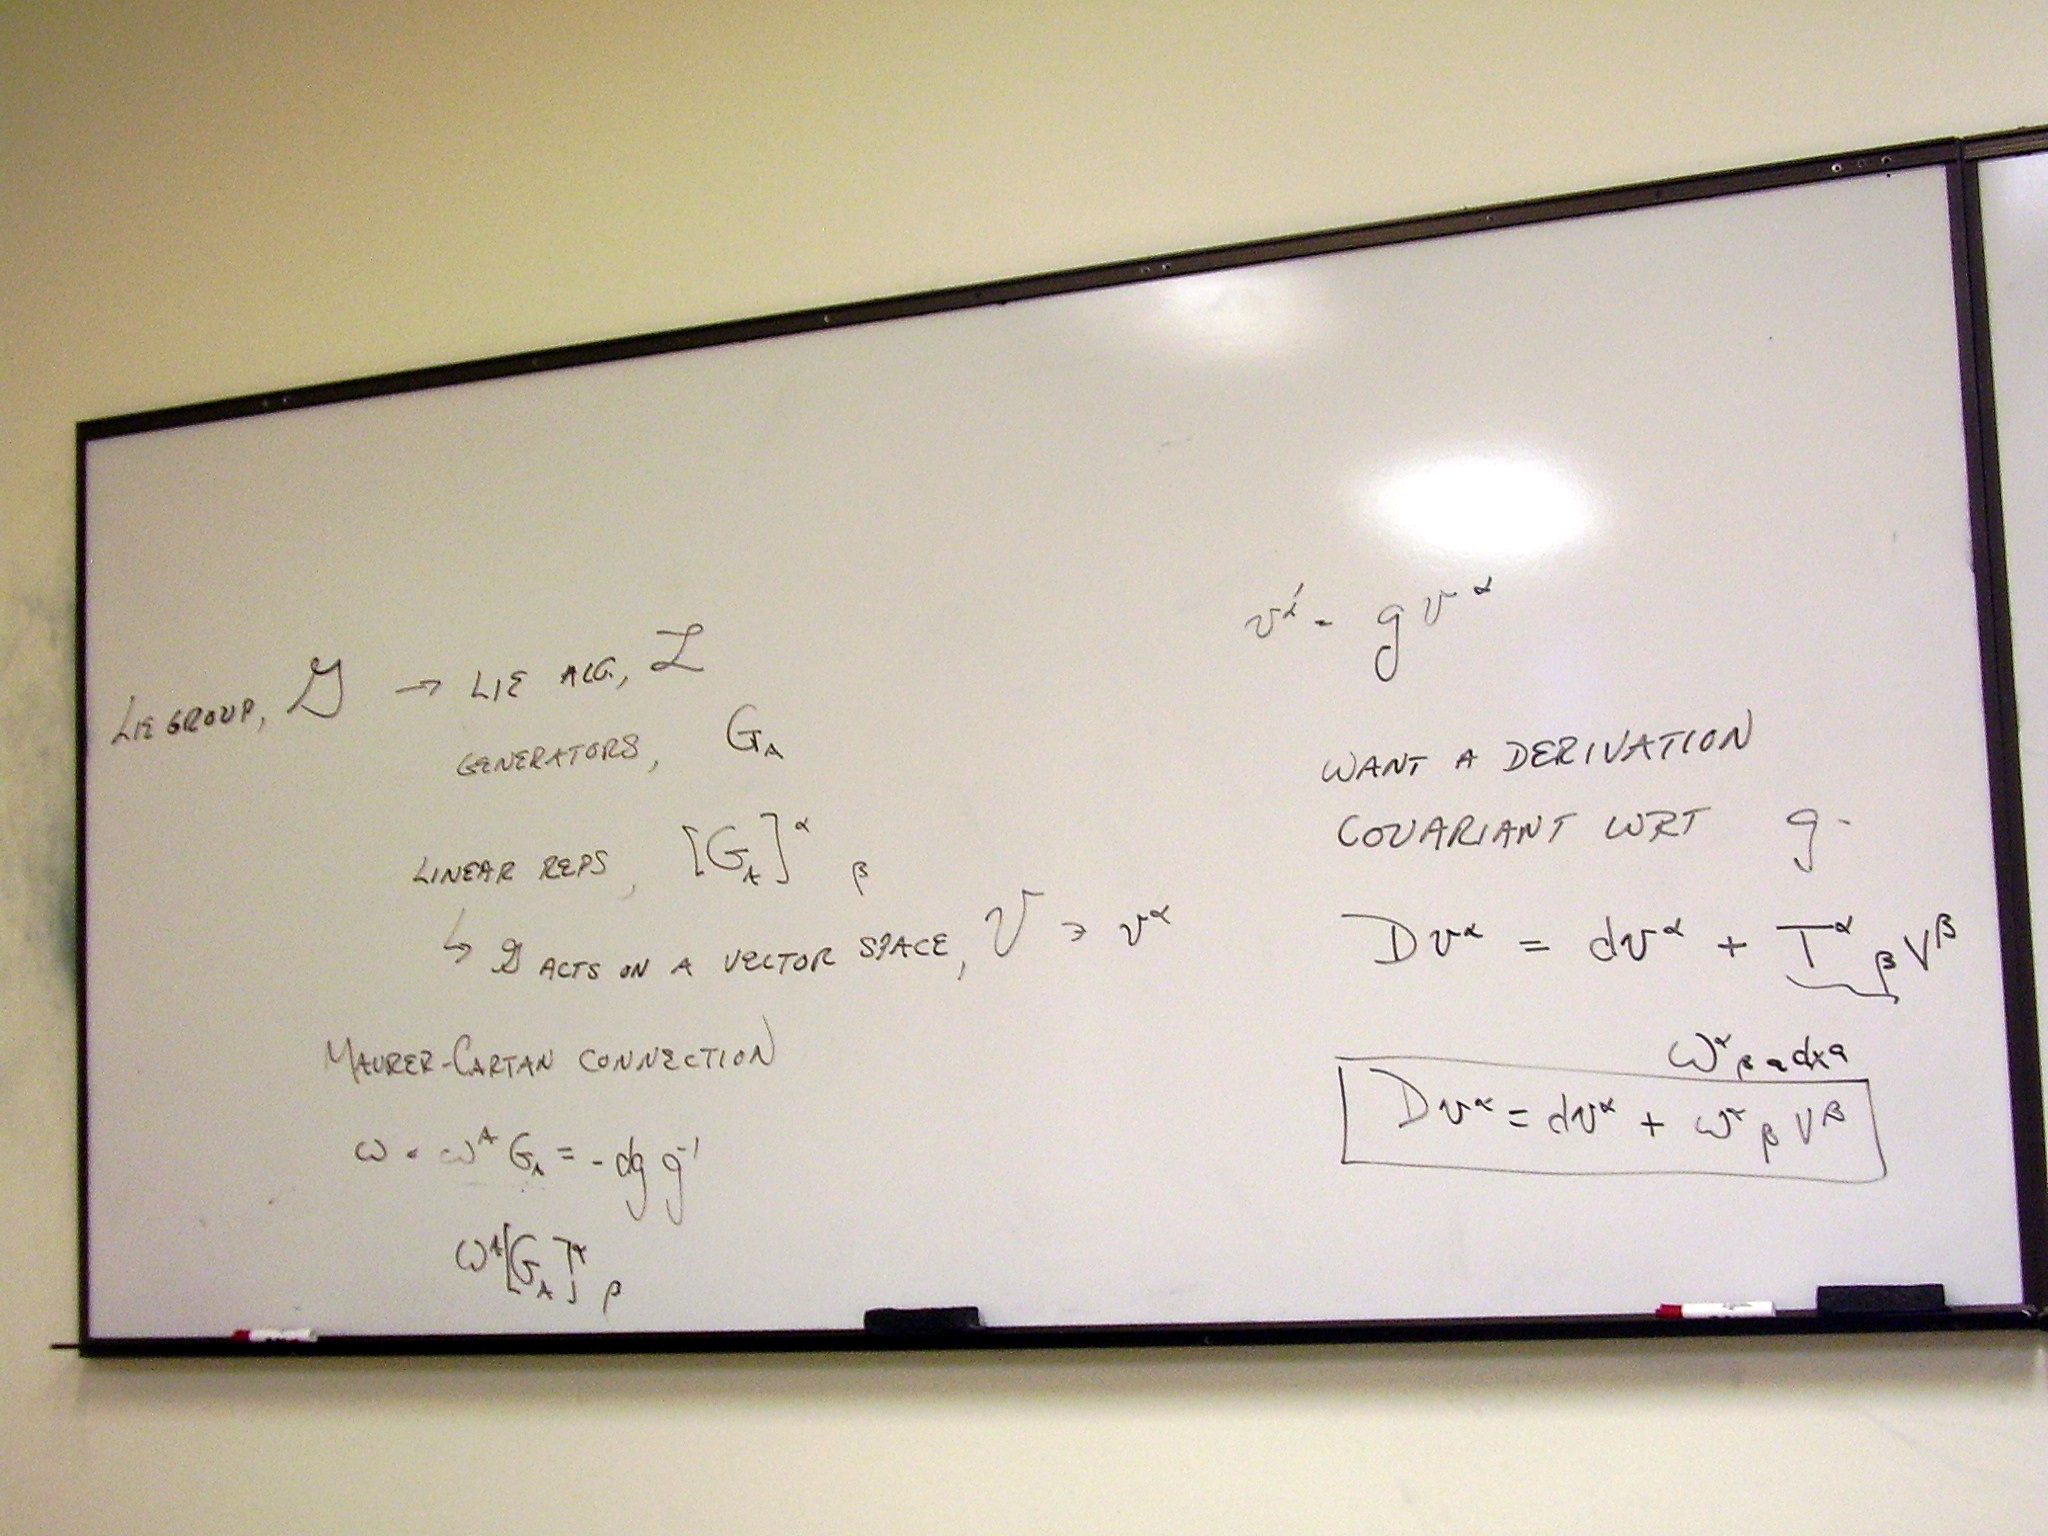 LIE GROUP, 𝒢 → LIE ALG, ℒ
GENERATORS, G_A
LINEAR REPS, [G_A]^α_β
↳ 𝒢 ACTS ON A VECTOR SPACE, V ∋ v^α
MAURER-CARTAN CONNECTION
ω = ω^A G_A = -dg g^-1
ω^A [G_A]^α_β
v^α' = g v^α
WANT A DERIVATION
COVARIANT WRT g.
Dv^α = dv^α + T^α_β V^β
ω^α_β a dx^a
Dv^α = dv^α + ω^α_β V^β